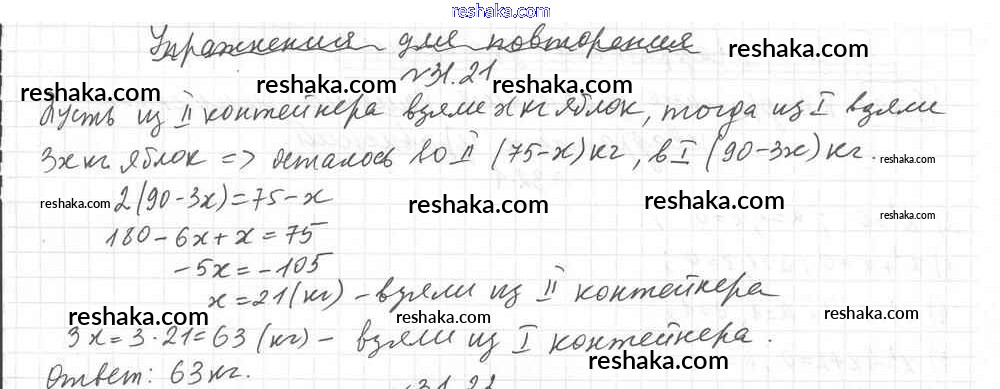 reshaka.com
Упражнения для повторения
reshaka.com
№31.21
reshaka.com reshaka.com reshaka.com
Пусть из II контейнера взяли x кг яблок, тогда из I взяли
3x кг яблок => осталось во II (75-x) кг, в I (90-3x) кг.
reshaka.com
reshaka.com 2(90-3x)=75-x reshaka.com reshaka.com reshaka.com
180-6x+x=75
-5x=-105
x=21(кг) - взяли из II контейнера
reshaka.com reshaka.com reshaka.com
3x=3·21=63 (кг) - взяли из I контейнера.
reshaka.com
Ответ: 63 кг.
31.22